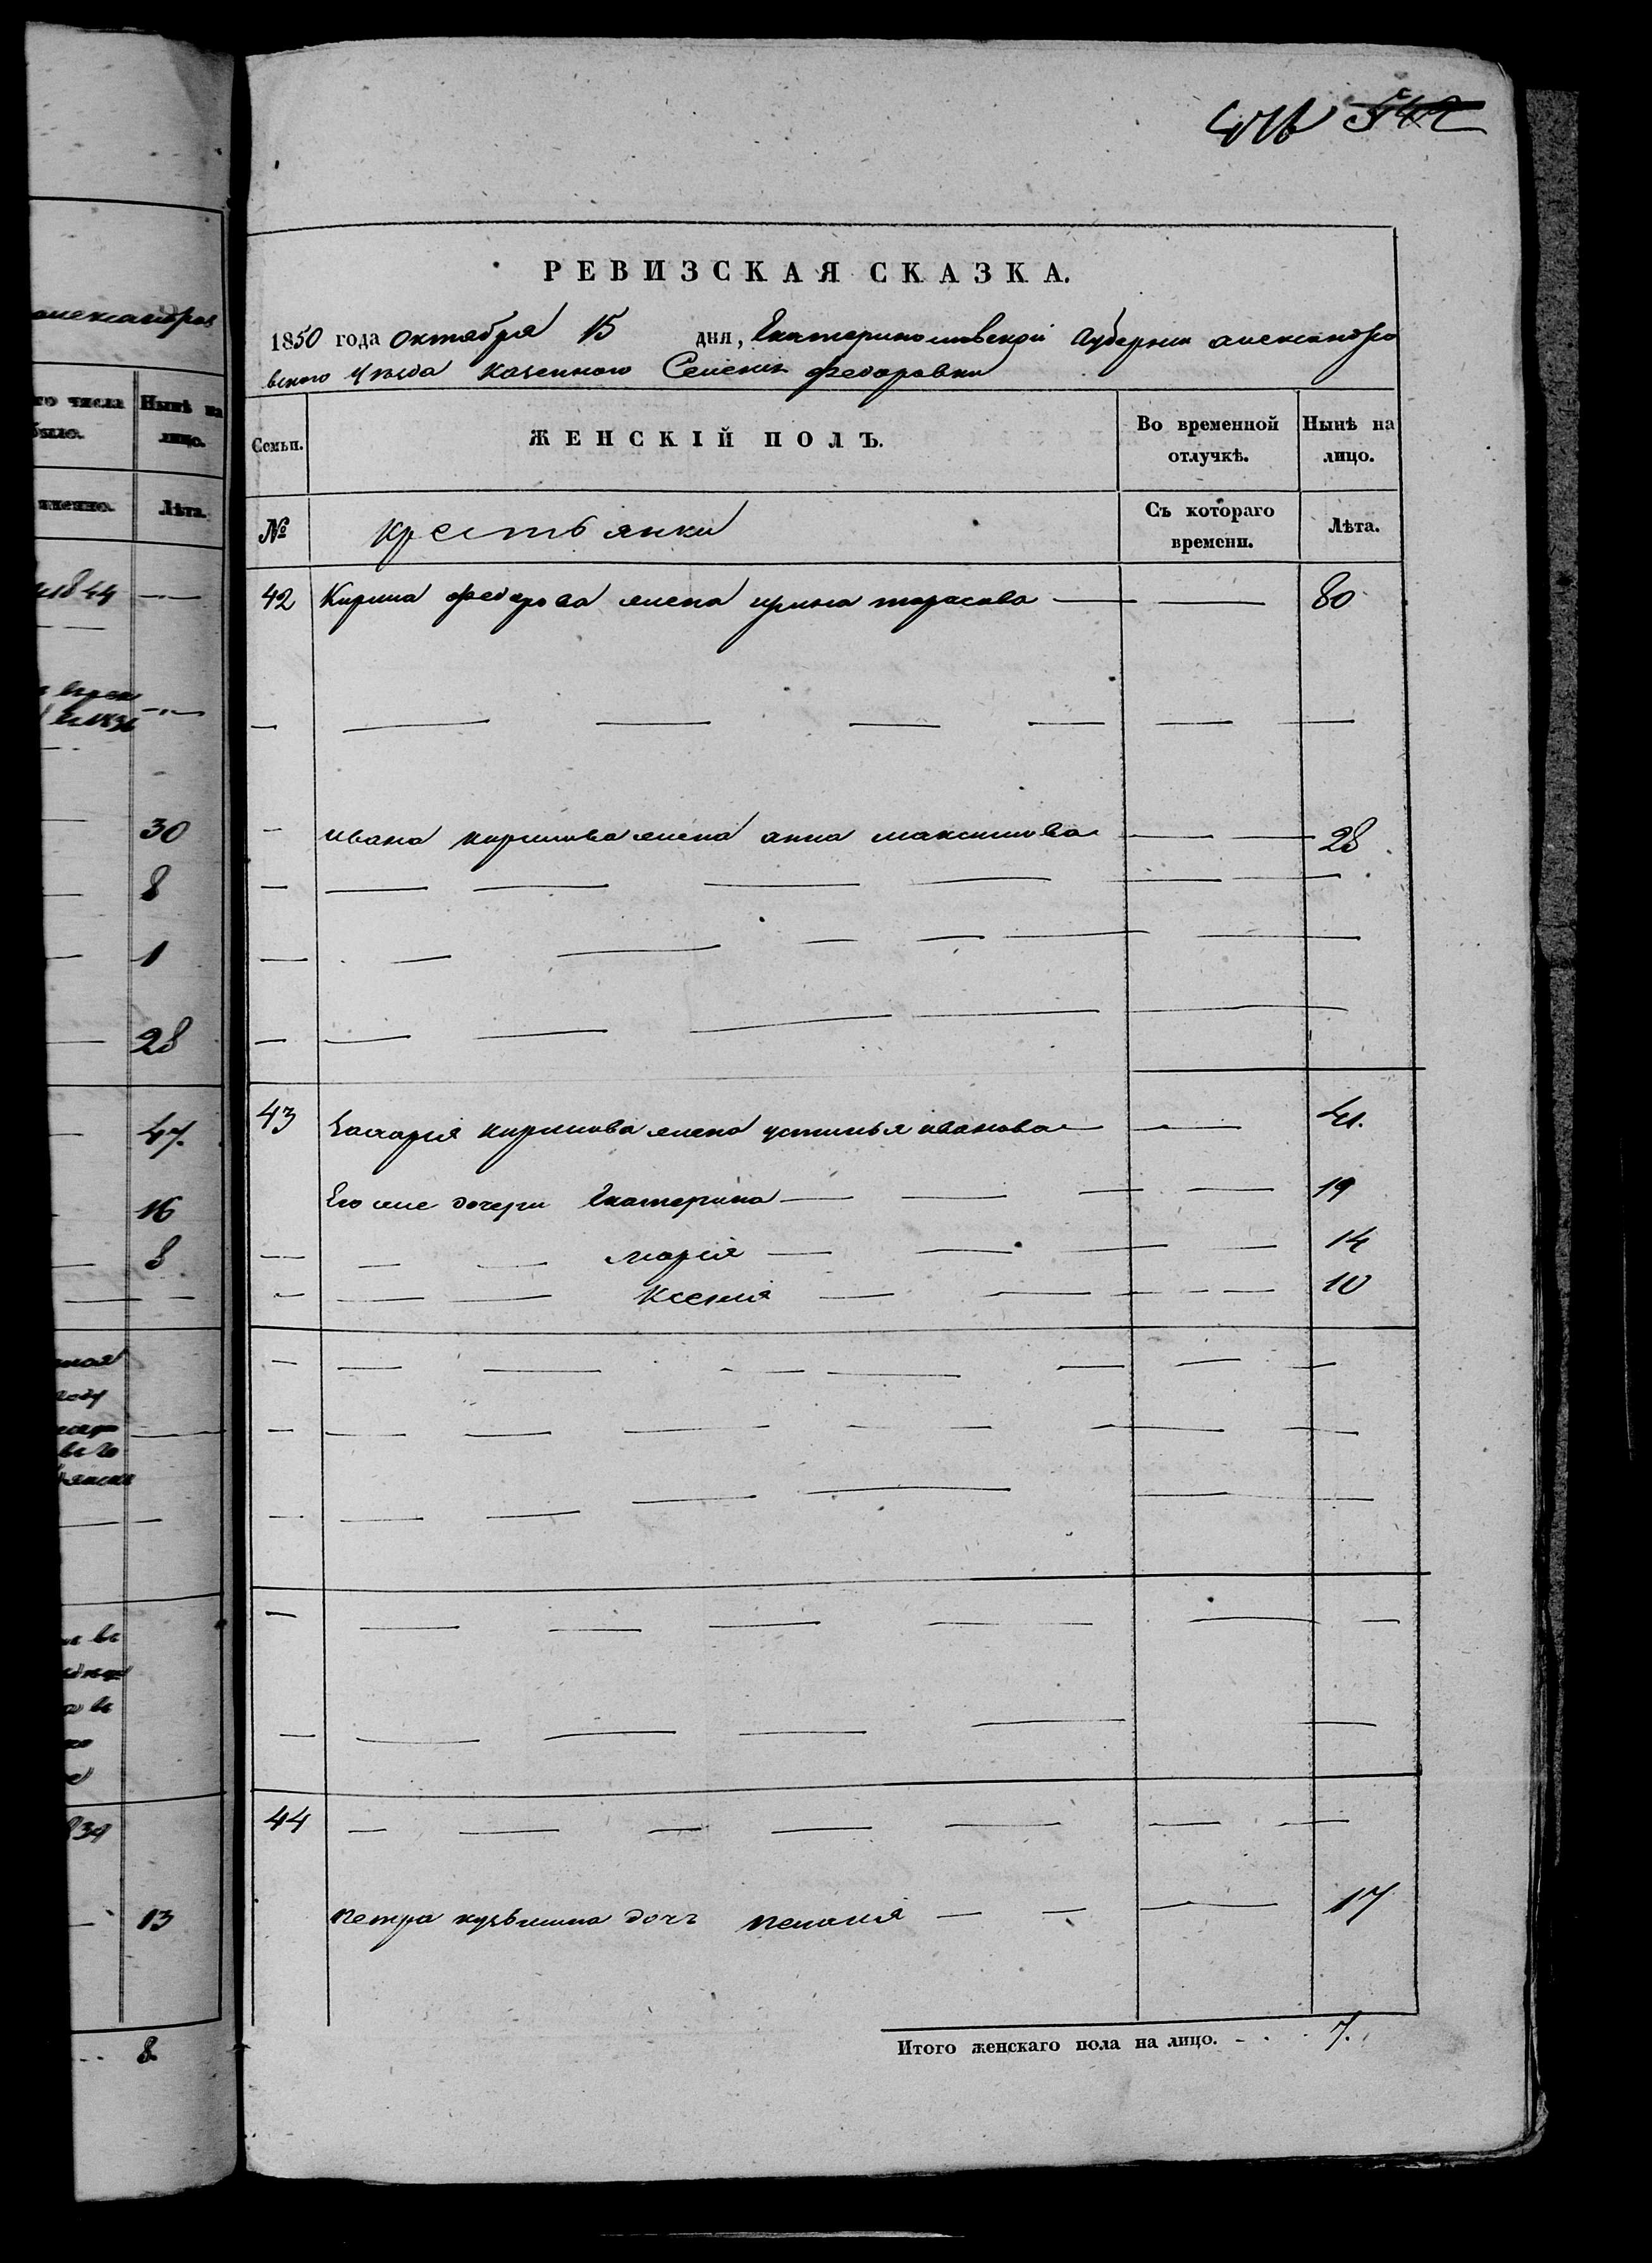 александров
го числа
было.
Нынѣ на
лицо.
именно.
Лѣта.
1844
30
8
1
28
47.
16
8
839
13
8
РЕВИЗСКАЯ СКАЗКА.
1850 года октября 15 дня, Екатеринославской Губернии александро
вского уѣзда казенного Селенія федоровки
Семьи.
ЖЕНСКІЙ ПОЛЪ.
Во временной
отлучкѣ.
Нынѣ на
лицо.
№
крестьянки
Съ котораго
времени.
Лѣта.
42 Кирила федорова жена ирина тарасова 80
ивана кирилова жена анна максимова 28
43 Захарія кирилова жена устинья иванова 41.
Его же дочери Екатерина 19
марія 14
Ксенія 10
44
петра кузьмина дочь пелагия 17
Итого женскаго пола на лицо. 7.